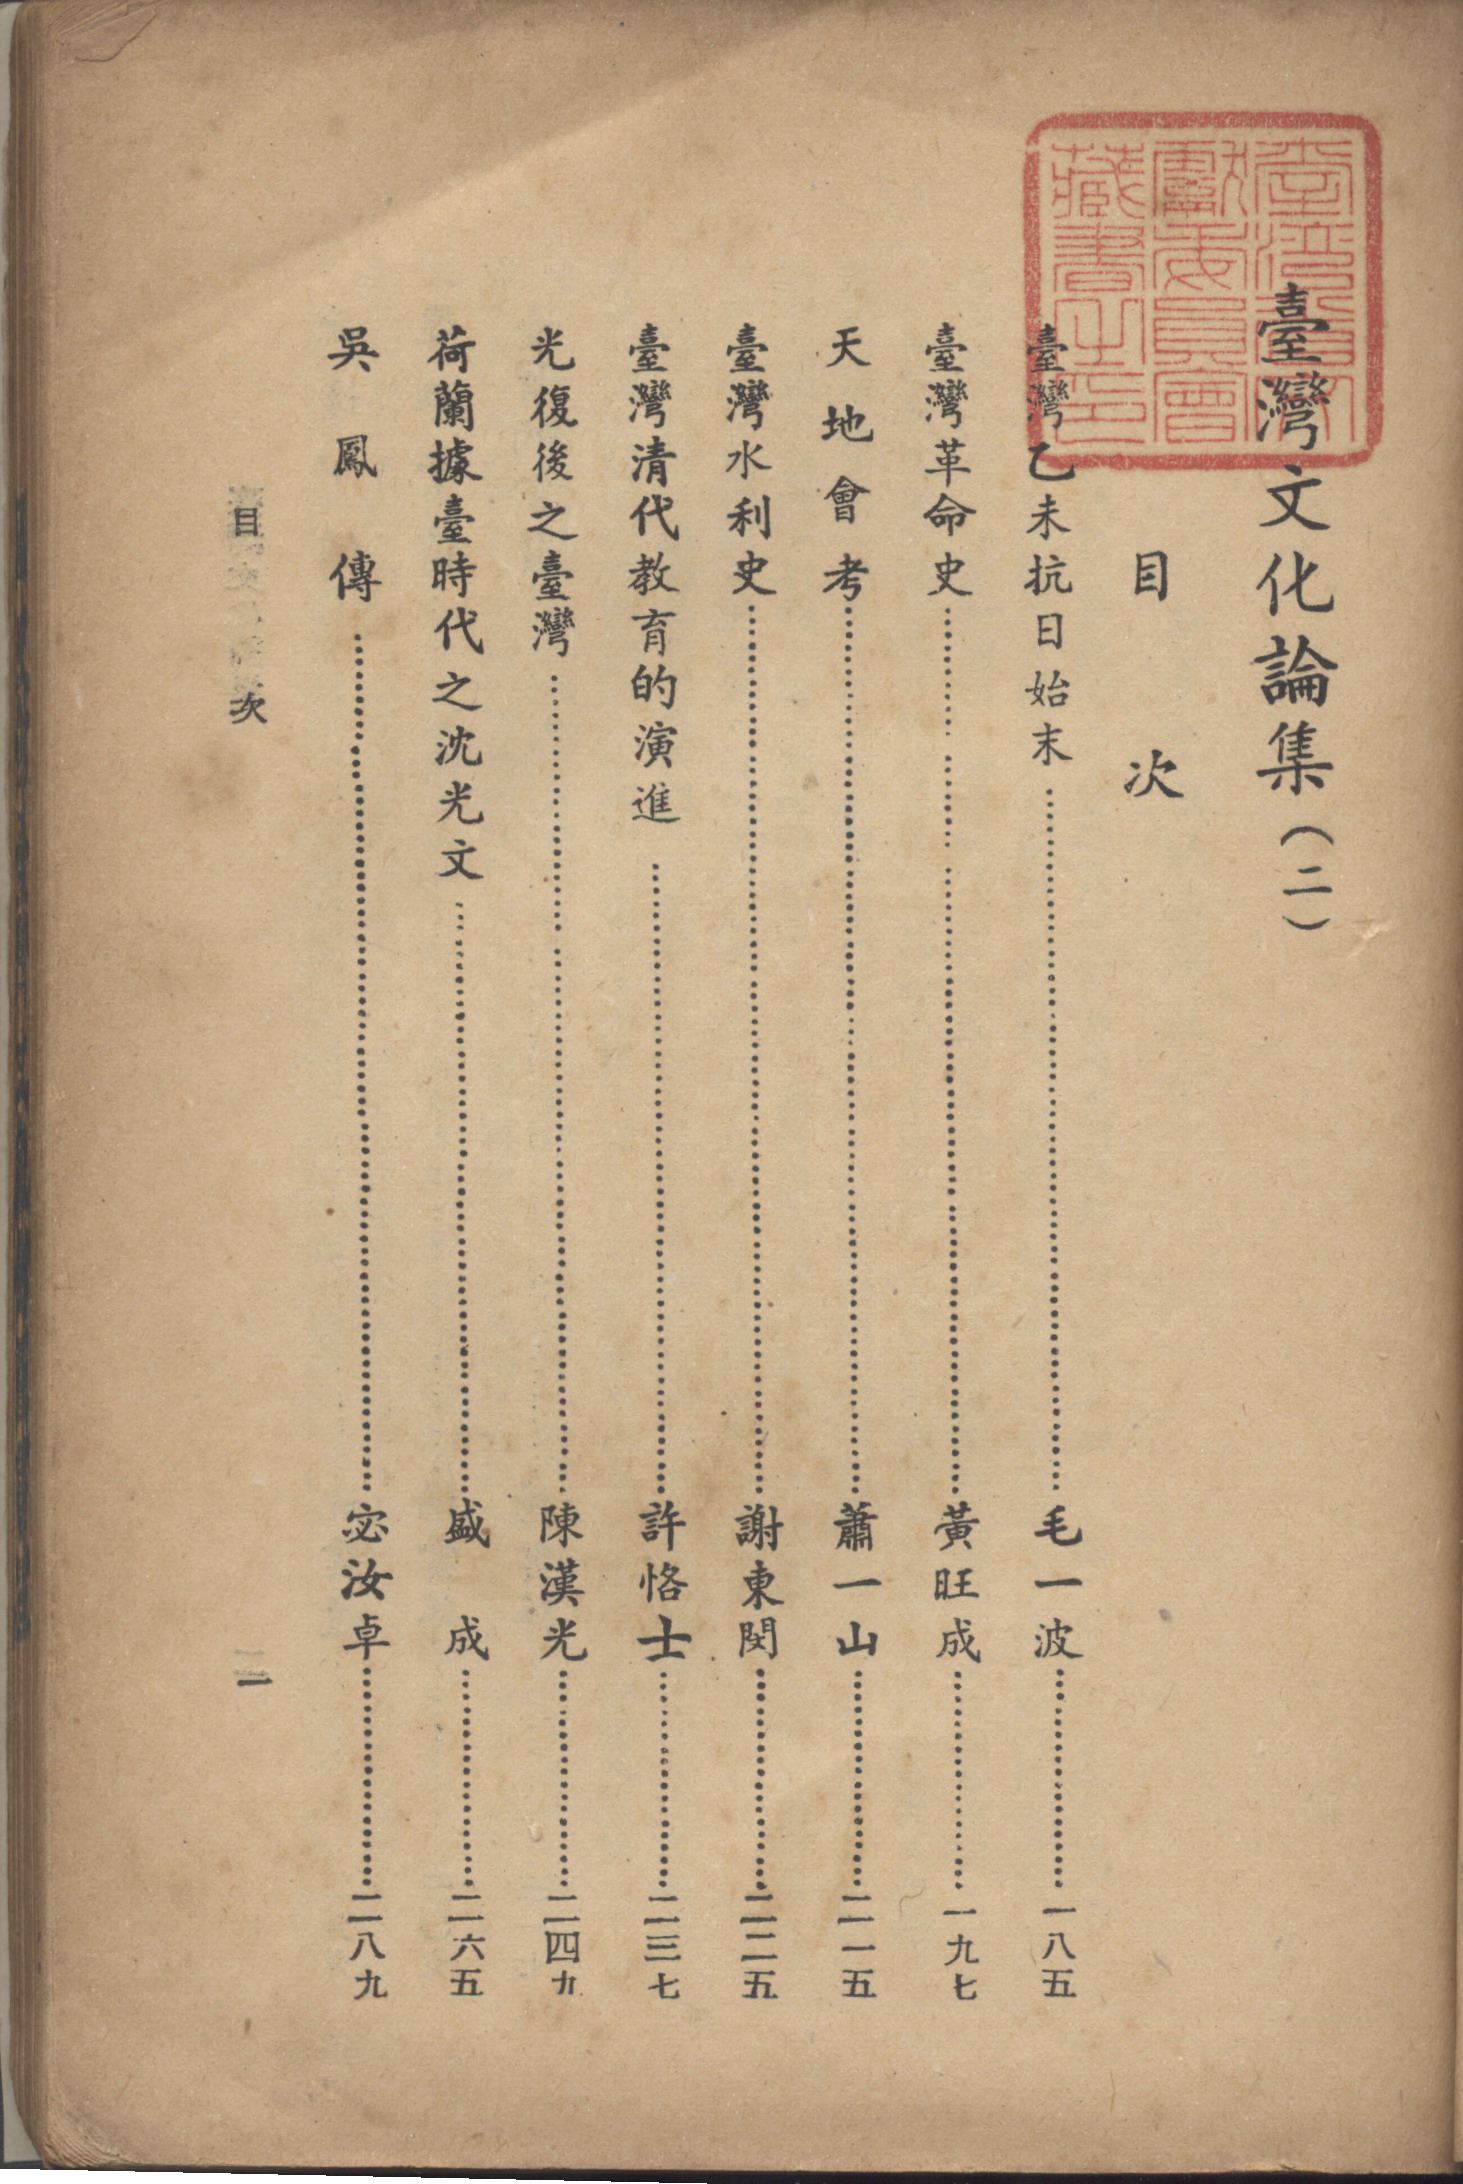 臺灣文化論集(二)
目次
臺灣乙未抗日始末……毛一波……一八五
臺灣革命史……黃旺成……一九七
天地會考……蕭一山……二一五
臺灣水利史……謝東閔……二二五
臺灣清代教育的演進……許恪士……二三七
光復後之臺灣……陳漢光……二四九
荷蘭據臺時代之沈光文……盛成……二六五
吳鳳傳……宓汝卓……二八九
目次
臺灣省文
獻委員會
藏書之印